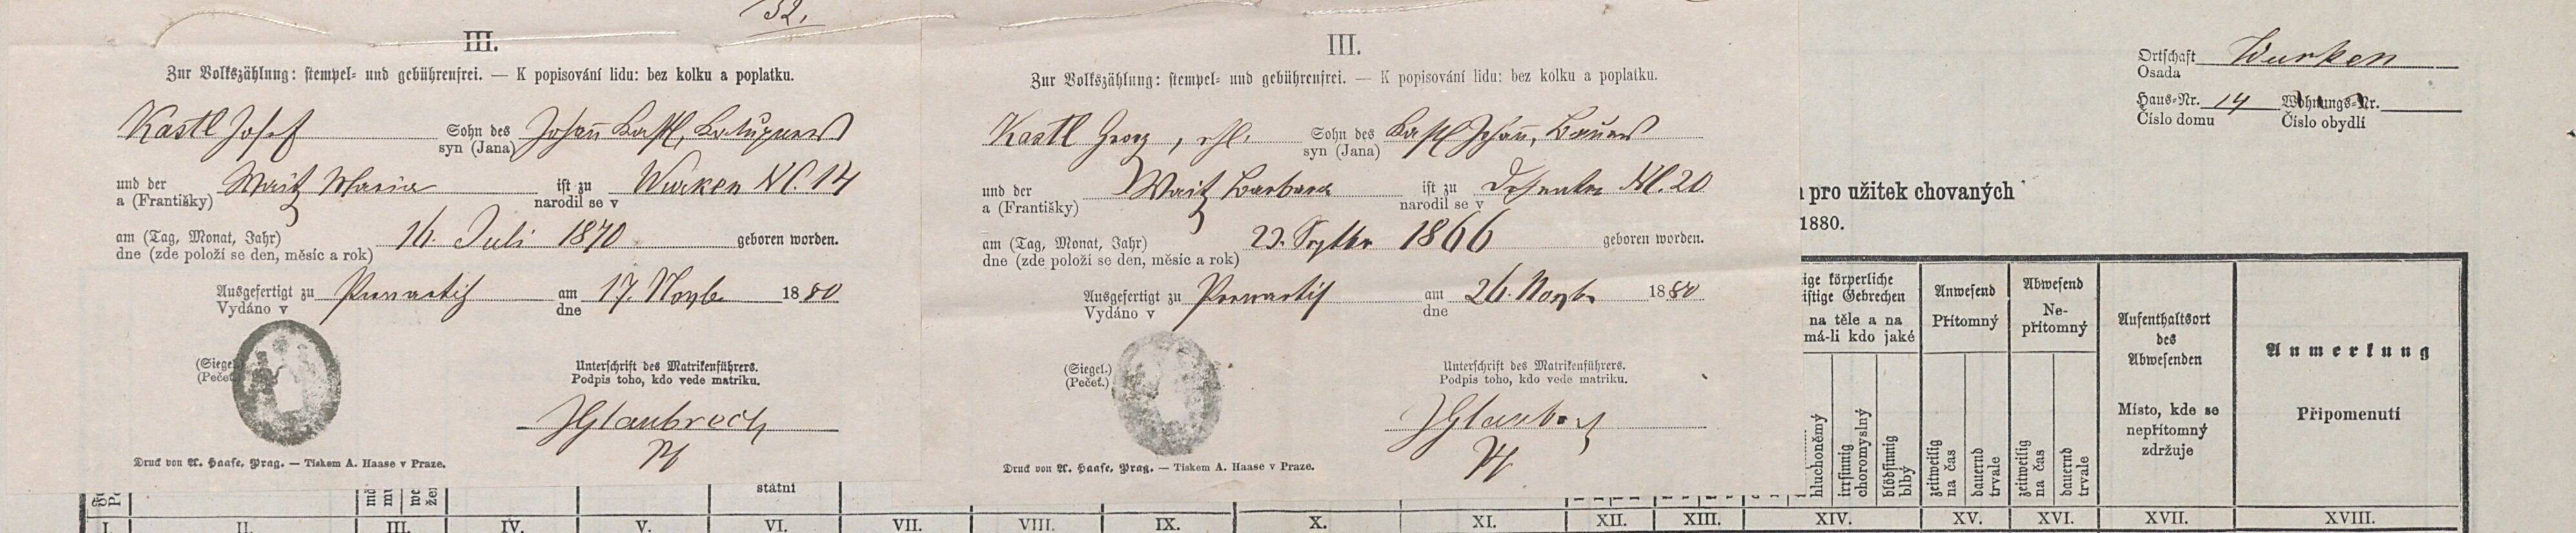 32.
III.
Zur Volkszählung: stempel- und gebührenfrei. — K popisování lidu: bez kolku a poplatku.
Kastl Josef Sohn des Johann Kastl,
syn (Jana)
und der Waitz Maria ist zu Wurken NC. 14
a (Františky) narodil se v
am (Tag, Monat, Jahr) 16. Juli 1870 geboren worden.
dne (zde položí se den, měsíc a rok)
Ausgefertigt zu am 17. Novbr 1880
Vydáno v dne
(Siegel.)
(Pečeť.)
Unterschrift des Matrikenführers.
Podpis toho, kdo vede matriku.
Druck von A. Haase, Prag. — Tiskem A. Haase v Praze.
III.
Zur Volkszählung: stempel- und gebührenfrei. — K popisování lidu: bez kolku a poplatku.
Kastl Georg, ehl. Sohn des Kastl Johann, Bauers
syn (Jana)
und der Waitz Barbara ist zu NC. 20
a (Františky) narodil se v
am (Tag, Monat, Jahr) 23. Septbr 1866 geboren worden.
dne (zde položí se den, měsíc a rok)
Ausgefertigt zu am 26. Novbr 1880
Vydáno v dne
(Siegel.)
(Pečeť.)
Unterschrift des Matrikenführers.
Podpis toho, kdo vede matriku.
Druck von A. Haase, Prag. — Tiskem A. Haase v Praze.
Ortschaft Wurken
Osada
Haus-Nr. 14 Wohnungs-Nr.
Číslo domu Číslo obydlí
pro užitek chovaných
1880.
ige körperliche
istige Gebrechen
na těle a na
má-li kdo jaké
hluchoněmý
irrsinnig
choromyslný
blödsinnig
blbý
Anwesend
Přítomný
zeitweilig
na čas
dauernd
trvale
Abwesend
Ne-
přítomný
zeitweilig
na čas
dauernd
trvale
Aufenthaltsort
des
Abwesenden
Místo, kde se
nepřítomný
zdržuje
Anmerkung
Připomenutí
státní
I. II. III. IV. V. VI. VII. VIII. IX. X. XI. XII. XIII. XIV. XV. XVI. XVII. XVIII.